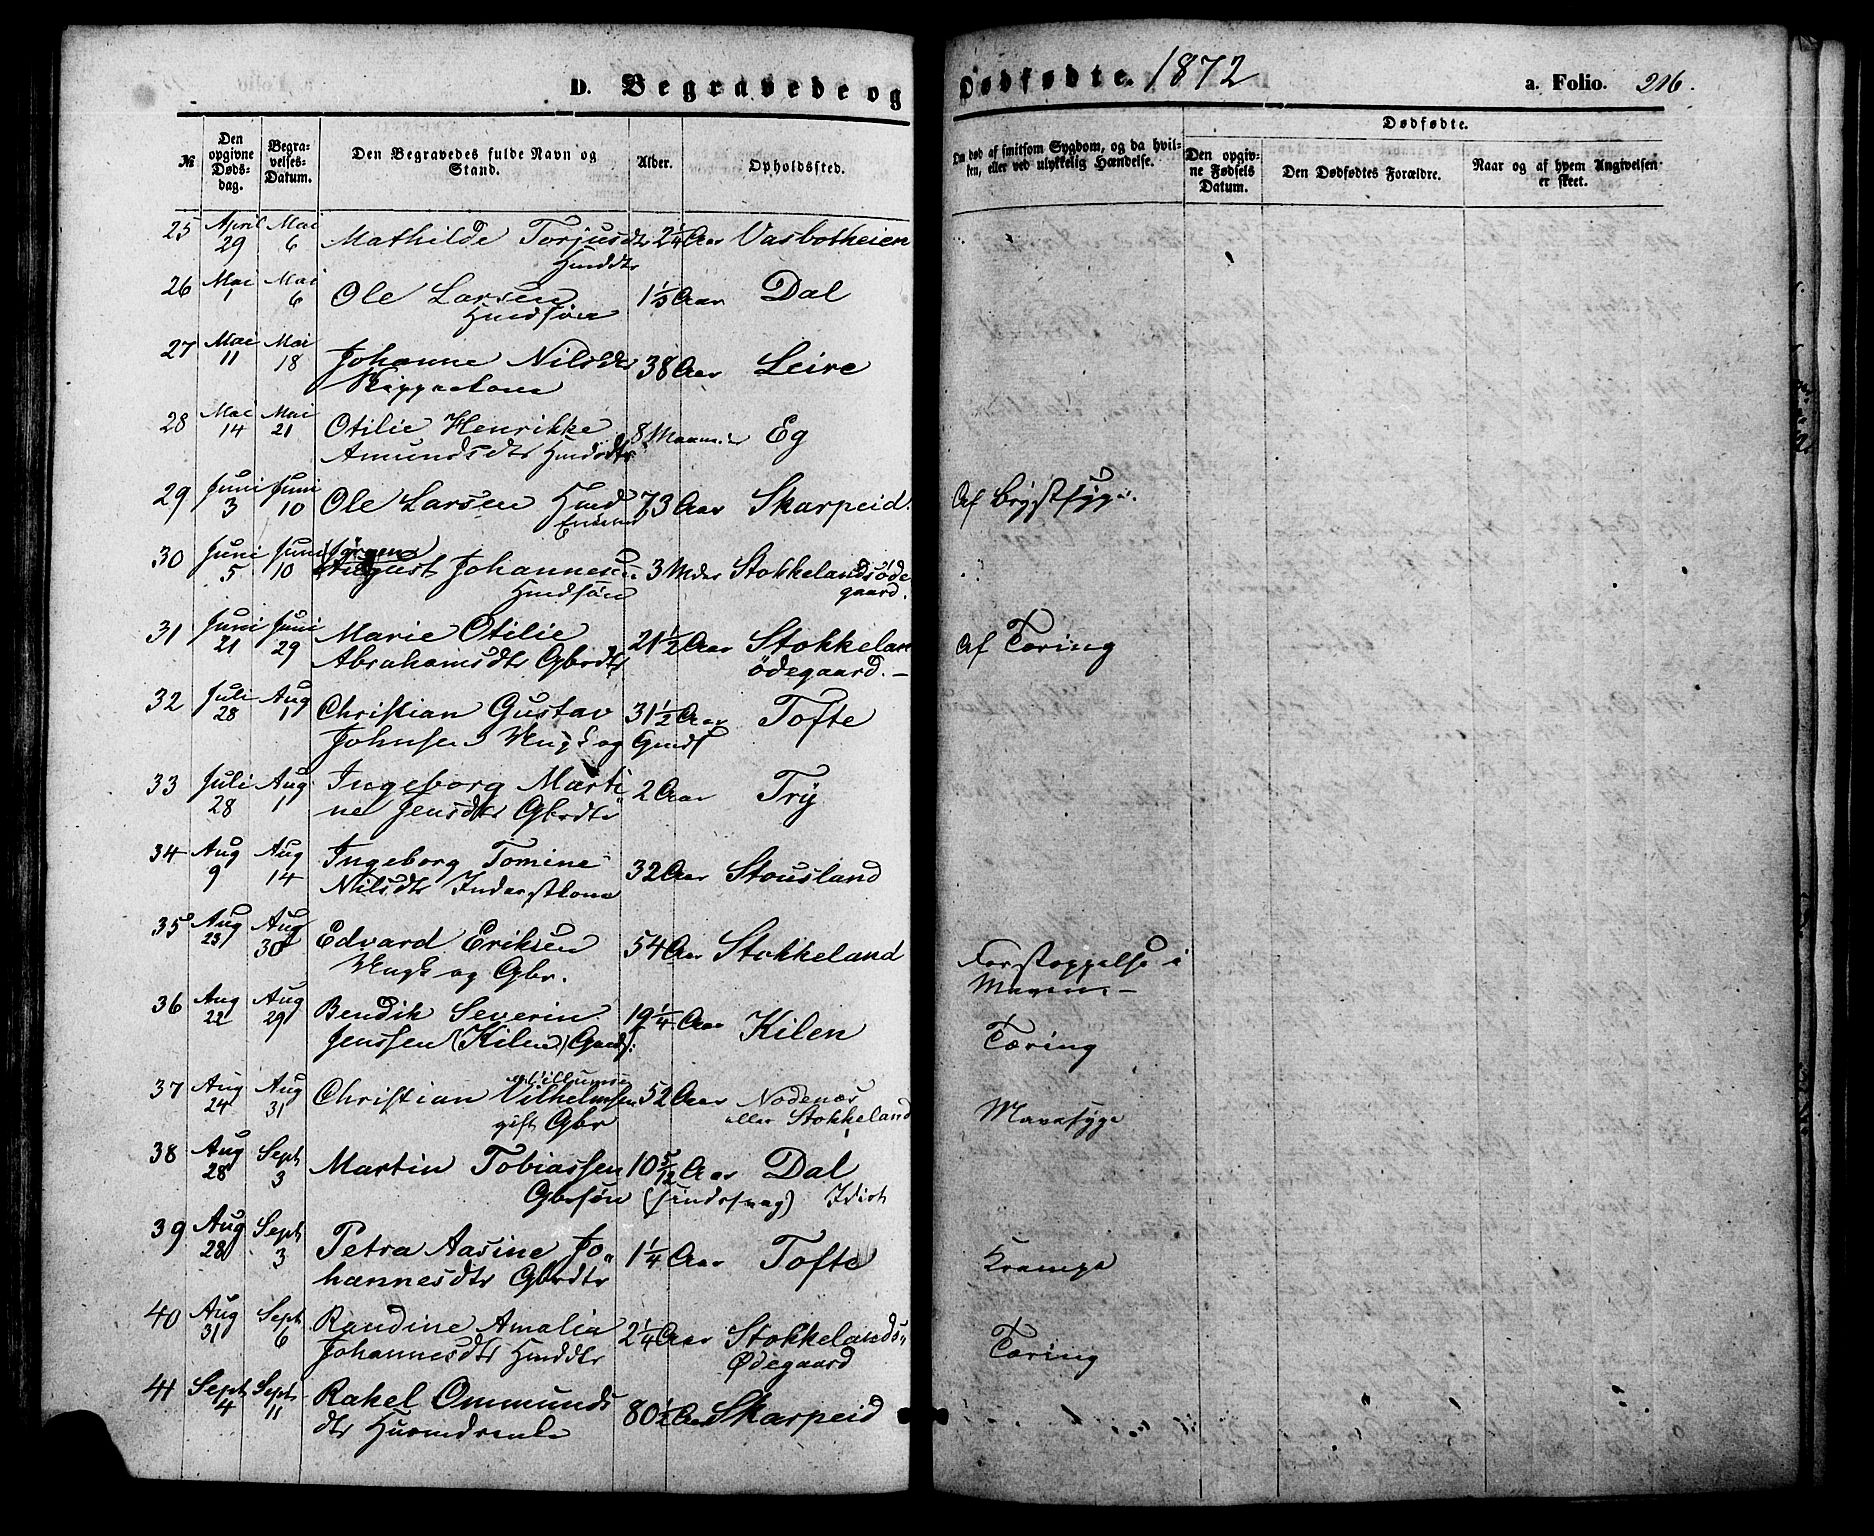 D. Begravede og Dødfødte. 1872 a. Folio. 206.
№ Den opgivne Dødsdag. Begravelses-Datum. Den Begravedes fulde Navn og Stand. Alder. Opholdssted. Om død af smitsom Sygdom, og da hvilken, eller ved ulykkelig Hændelse. Dødfødte. Den opgivne Fødsels Datum. Den Dødfødtes Forældre. Naar og af hvem Angivelsen er skeet.
25 April 29 Mai 6 Mathilde Torjusdtr 2¼ Aar Vasbotheien
Husmdtr
26 Mai 1 Mai 6 Ole Larsen 1⅓ Aar Dal
Husmsøn
27 Mai 11 Mai 18 Johanne Nilsdtr 38 Aar Leire
28 Mai 14 Mai 21 Otilie Henrikke 8 Maaneder Eg
Amundsdtr
29 Juni 3 Juni 10 Ole Larsen 73 Aar Skarpeid. Af Brystsyge.
30 Juni 5 Juni 10 Jørgen
August Johannesen 3 Mdr Stokkelandsøde
gaard.
31 Juni 21 Juni 29 Marie Otilie 21½ Aar Stokkelan Af Tæring
Abrahamsdtr Gbrdtr ødegaard. —
32 Juli 28 Aug 1 Christian Gustav 31½ Aar Tofte
Johnsen Ungk og Gmds
33 Juli 28 Aug 1 Ingeborg Marti 2 Aar Try
ne Jensdtr Gbrdtr
34 Aug 9 Aug 14 Ingeborg Tomine 32 Aar Stousland
Nilsdtr Inderstkone
35 Aug 23 Aug 30 Edvard Eriksen 54 Aar Stokkeland Forstoppelse i
Ungk og Gbr. Maven —
36 Aug 22 Aug 29 Bendik Severin 19¼ Aar Kilen Tæring
Jenssen (Kilen) Gmds:
37 Aug 24 Aug 31 Christian Vilhelmsen 52 Aar Nodenæs Mavesyge
gift Gbr eller Stokkeland
38 Aug 28 Sept 3 Martin Tobiassen 10 5/12 Aar Dal
Gbrsøn (sindssvag) Idiot
39 Aug 28 Sept 3 Petra Aasine Jo 1¼ Aar Tofte Krampe
hannesdtr Gbrdtr
40 Aug 31 Sept 6 Randine Amalia 2¼ Aar Stokkelands Tæring
Johannesdtr Husmdtr Ødegaard
41 Sept 4 Sept 11 Rakel Ommunds 80½ Aar Skarpeid
dtr Husmdsenke